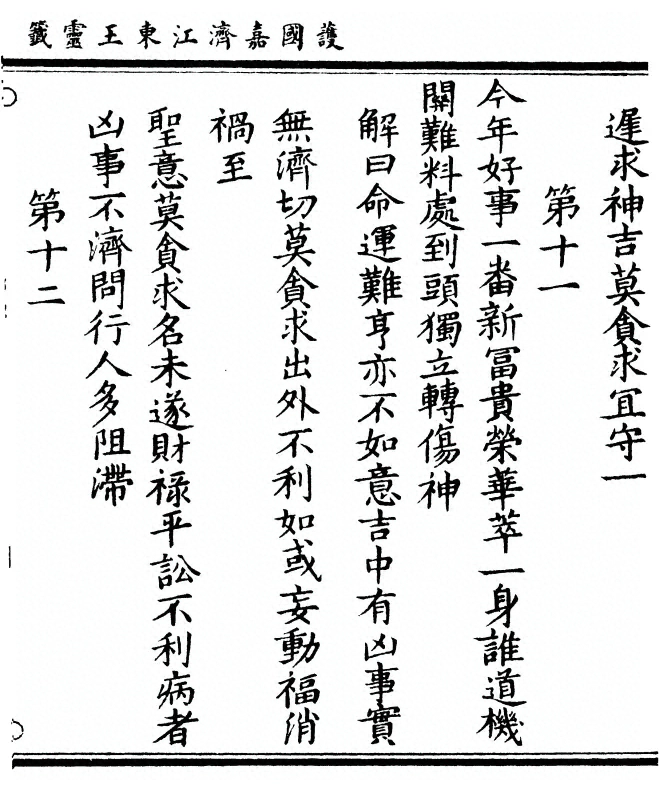 護國嘉濟江東王靈籤
遲求神吉莫貪求宜守一
第十一
今年好事一番新冨貴榮華萃一身誰道機
關難料處到頭獨立轉傷神
解曰命運難亨亦不如意吉中有凶事實
無濟切莫貪求出外不利如或妄動福消
禍至
聖意莫貪求名未遂財祿平訟不利病者
凶事不濟問行人多阻滯
第十二